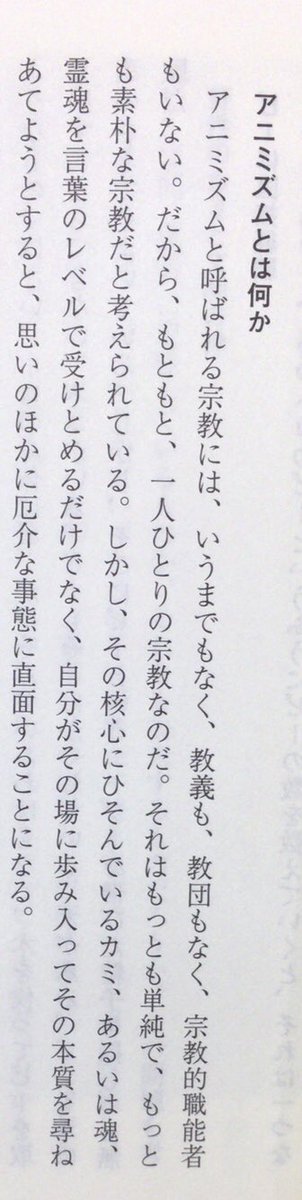 アニミズムとは何か
アニミズムと呼ばれる宗教には、いうまでもなく、教義も、教団もなく、宗教的職能者
もいない。だから、もともと、一人ひとりの宗教なのだ。それはもっとも単純で、もっと
も素朴な宗教だと考えられている。しかし、その核心にひそんでいるカミ、あるいは魂、
霊魂を言葉のレベルで受けとめるだけでなく、自分がその場に歩み入ってその本質を尋ね
あてようとすると、思いのほかに厄介な事態に直面することになる。